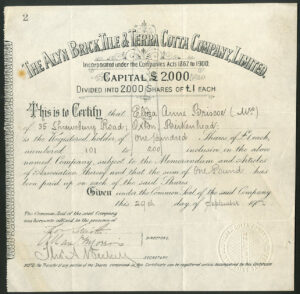 2
THE ALYN BRICK TILE & TERRA COTTA COMPANY, LIMITED.
Incorporated under the Companies Acts 1862 to 1900.
CAPITAL £2000
DIVIDED INTO 2000 SHARES OF £1 EACH
This is to Certify that Eliza Anne Briscoe (Mrs)
of 35 Shrewsbury Road, Oxton, Birkenhead
is the Registered Holder of One hundred Shares of £1 each,
numbered 101 to 200 inclusive in the above
named Company, subject to the Memorandum and Articles
of Association thereof and that the sum of One Pound has
been paid up on each of the said Shares
Given under the Common Seal of the said Company
this 29th day of September
The Common Seal of the said Company
was hereunto affixed in the presence of
DIRECTORS.
SECRETARY.
NOTE. No Transfer of any portion of the Shares comprised in this Certificate can be registered unless accompanied by this Certificate.